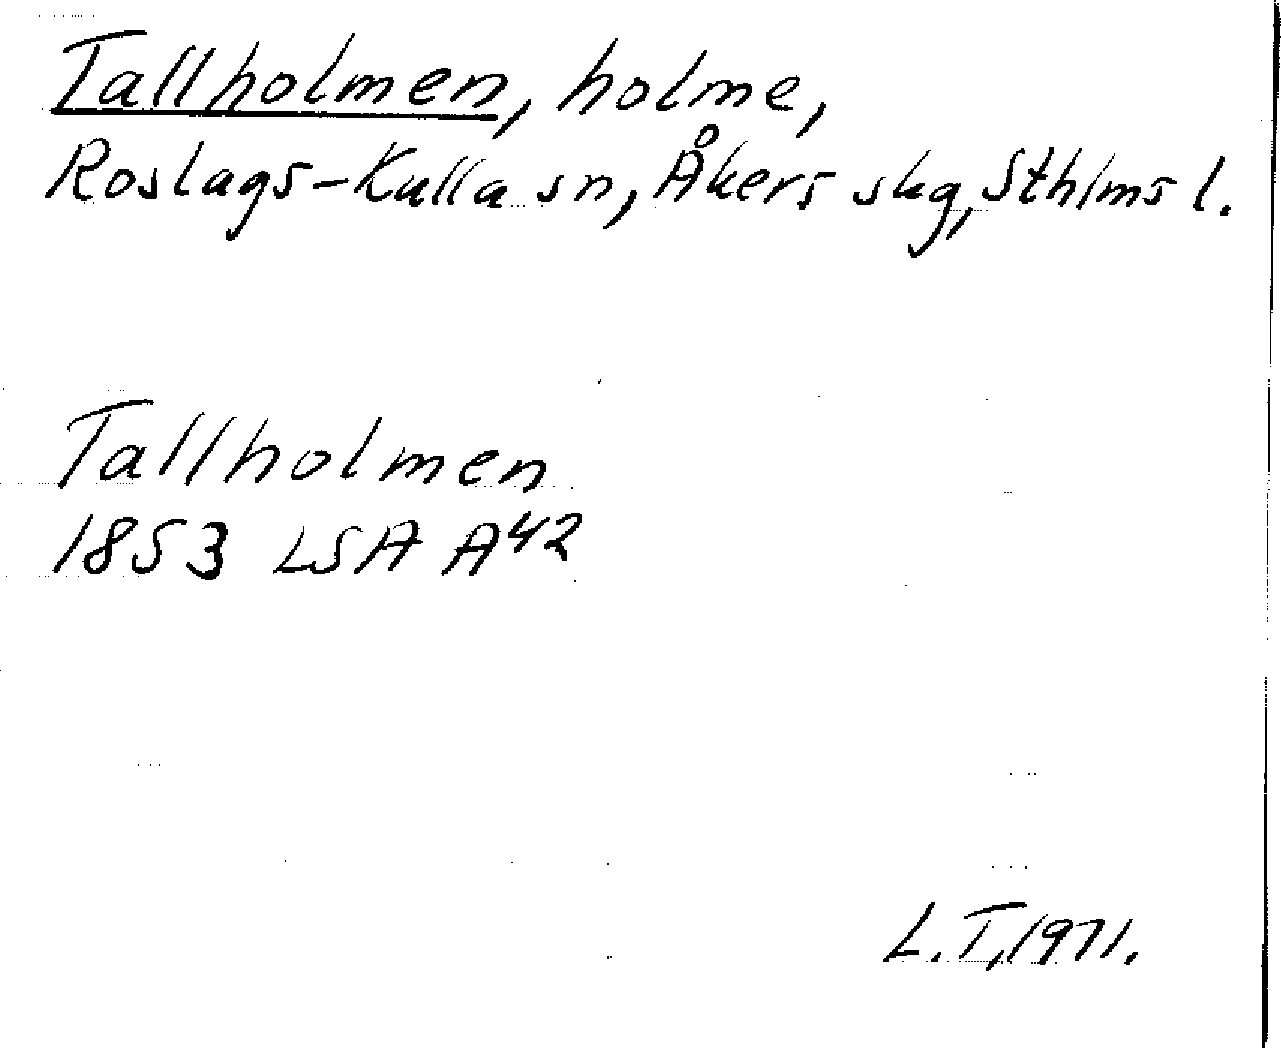 Tallholmen, holme,
Roslags-Kulla sn, Åkers skg, Sthlms l.
Tallholmen
1853 LSA A42
L.T, 1971.